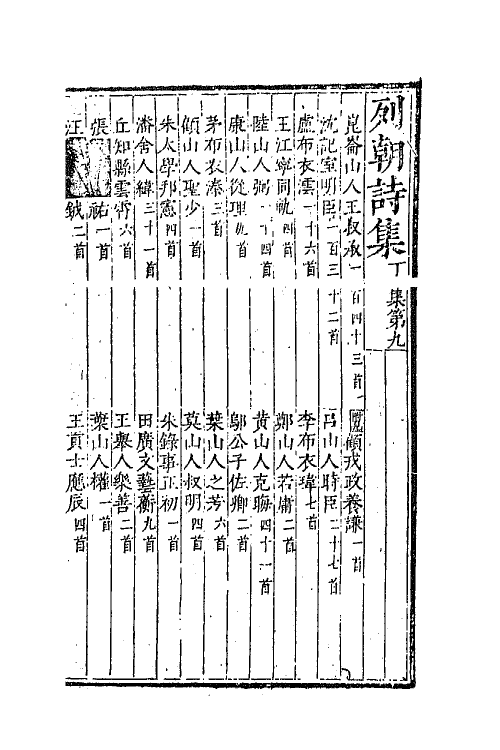 列朝詩集丁集第九
崑崙山人王叔承一百四十三首 附見顧戎政養謙一首
沈記室明臣一百三十二首 呂山人時臣二十七首
盧布衣雲二十六首 李布衣瑋七首
王江寧同軌四首 鄭山人若庸二首
陸山人弼一十四首 黃山人克晦四十一首
康山人從理九首 鄔公子佐卿二首
茅布衣溱三首 葉山人之芳六首
顧山人聖少一首 莫山人叔明四首
朱太學邦憲四首 朱錄事正初一首
潘舍人緯三十一首 田廣文藝蘅九首
丘知縣雲霄六首 王舉人樂善二首
張 祐一首 葉山人權一首
汪 鉞二首 王貢士應辰四首